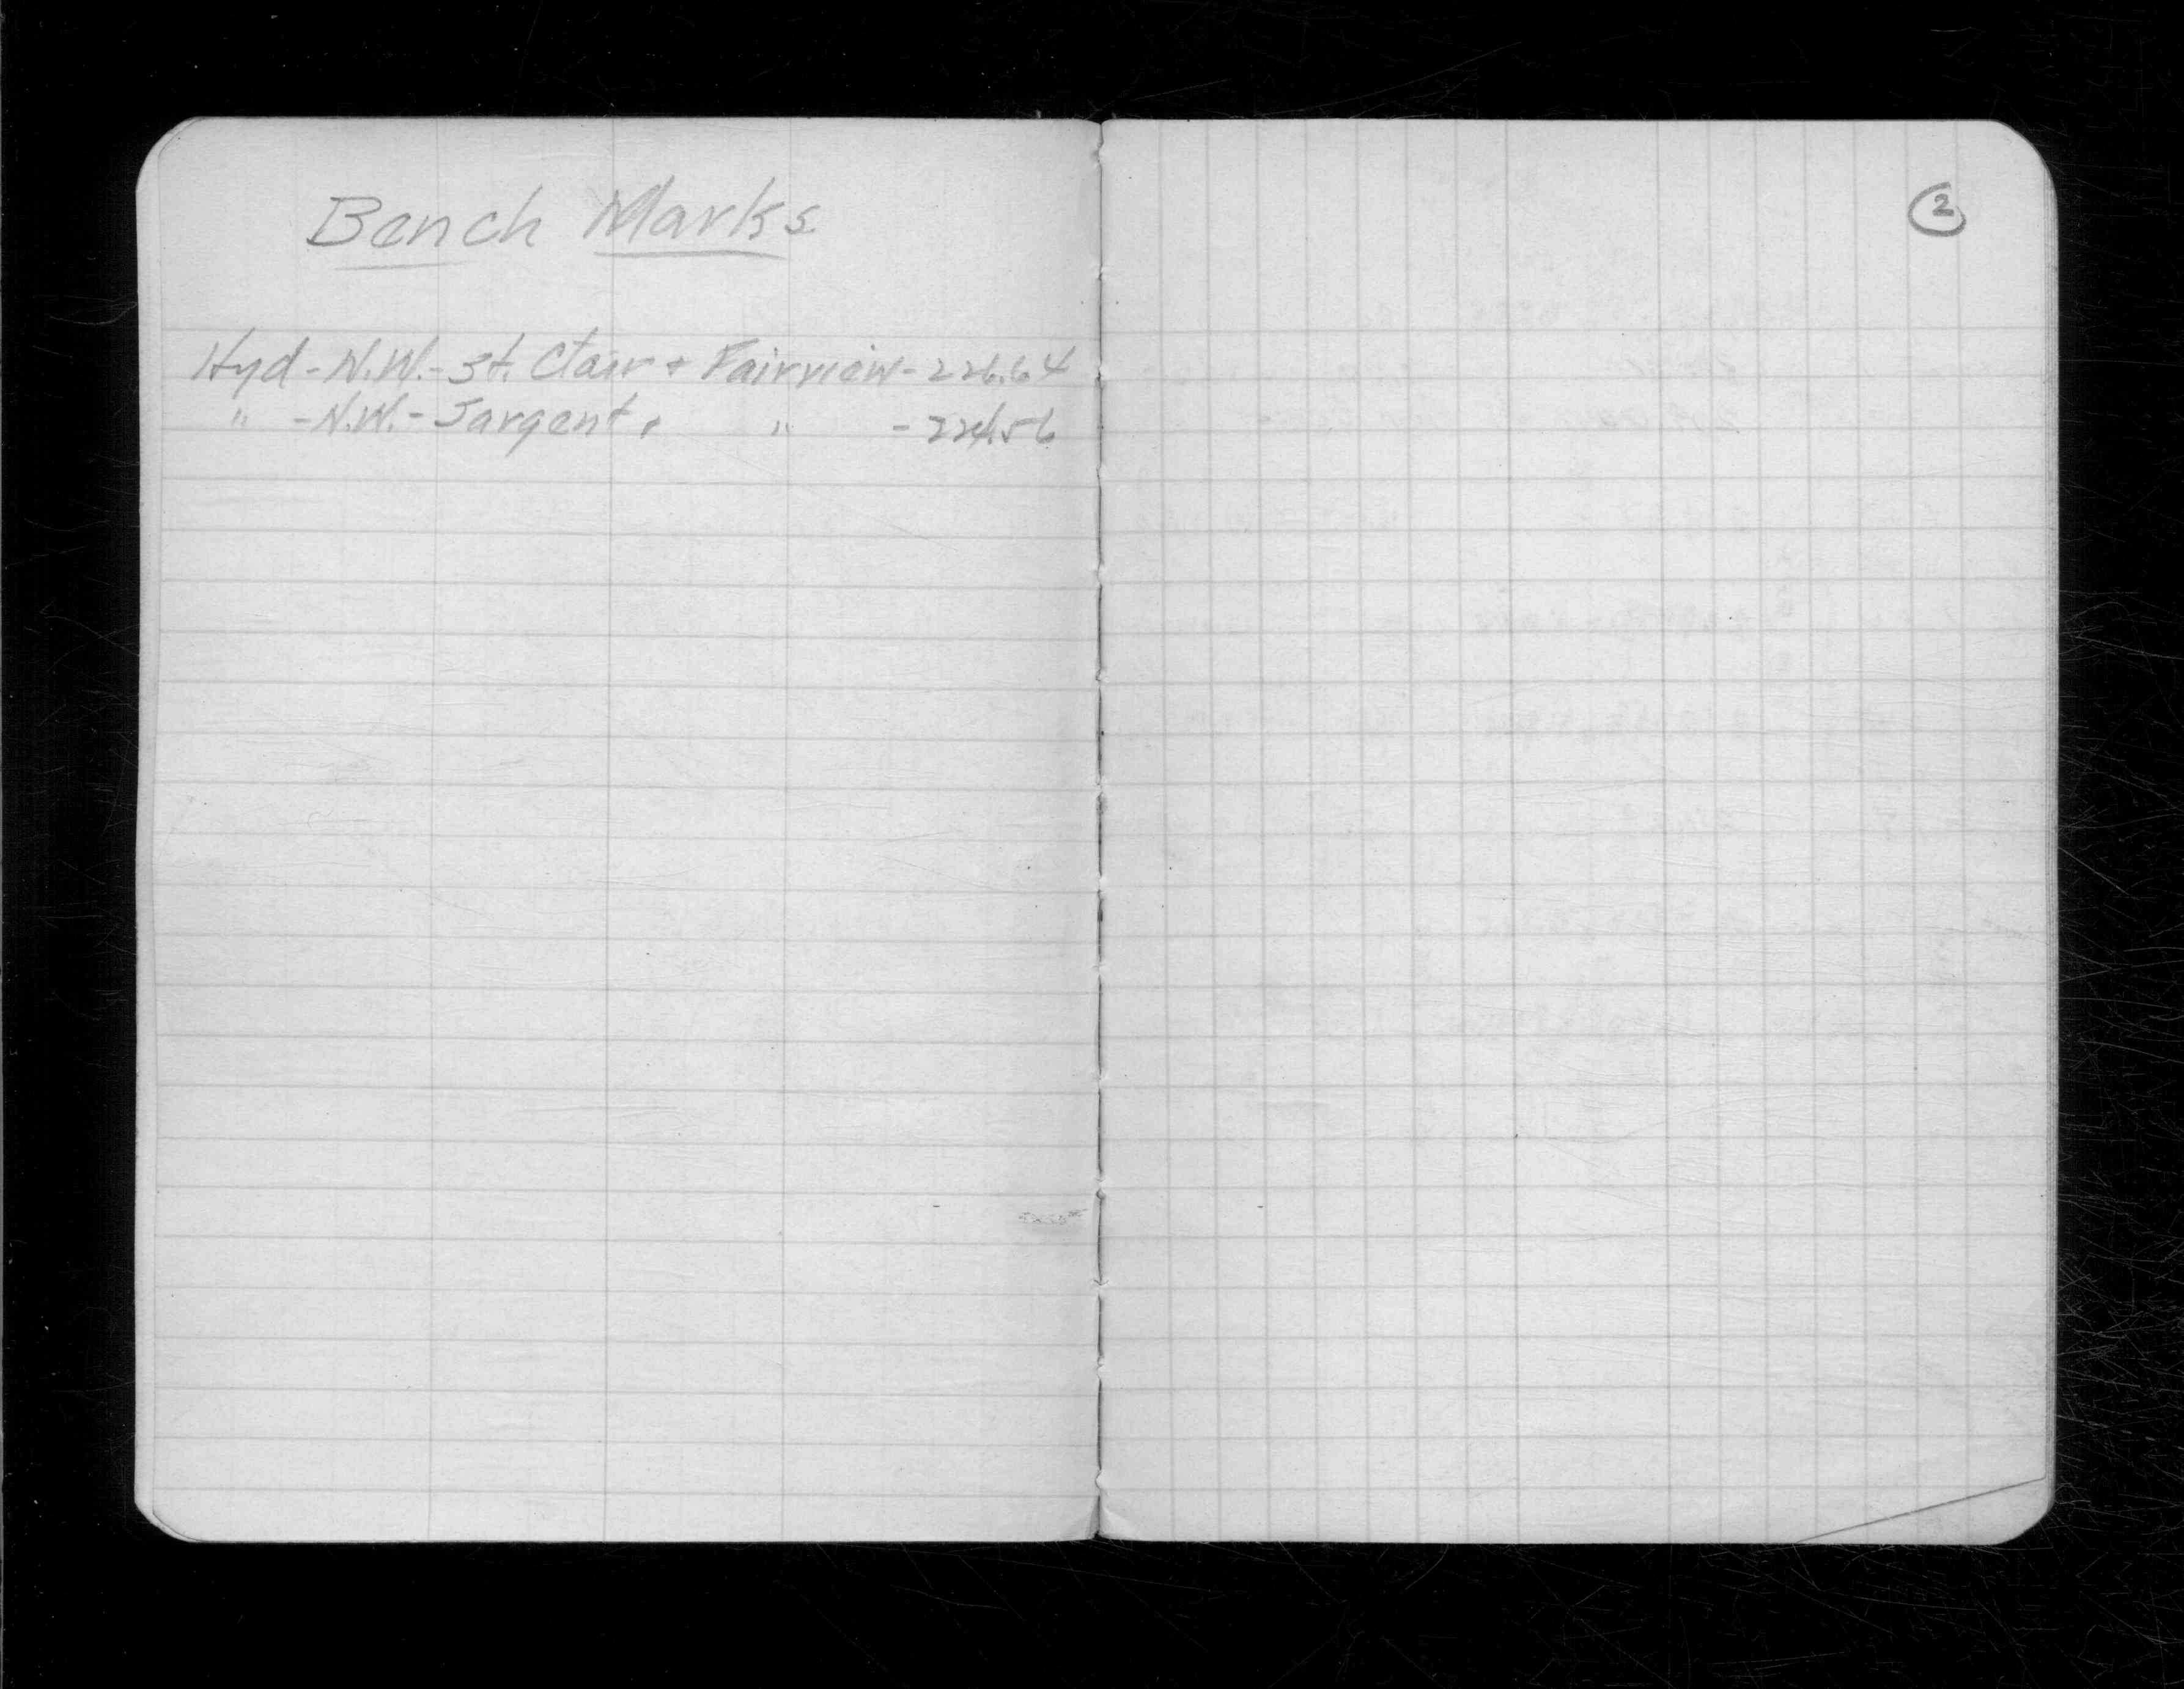 Bench Marks
Hyd - N.W. - St. Clair + Fairview - 226.64
" - N.W. - Sargent + " - 224.56
2